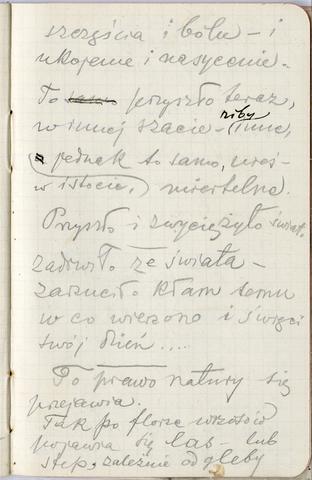 szczęścia i bólu – i
ukojenie i nasycenie.
To przyszło teraz,
w innej szacie – (niby inne,
jednak to samo, nieś-
w istocie,) miertelne.
Przyszło i zwyciężyło świat.
zadrwiło ze świata –
zarzuciło kłam temu
w co wierzono i święci
swój dzień....
To prawo natury się
przejawia.
Tak po florze wrzosów
pojawia się las – lub
step, zależnie od gleby